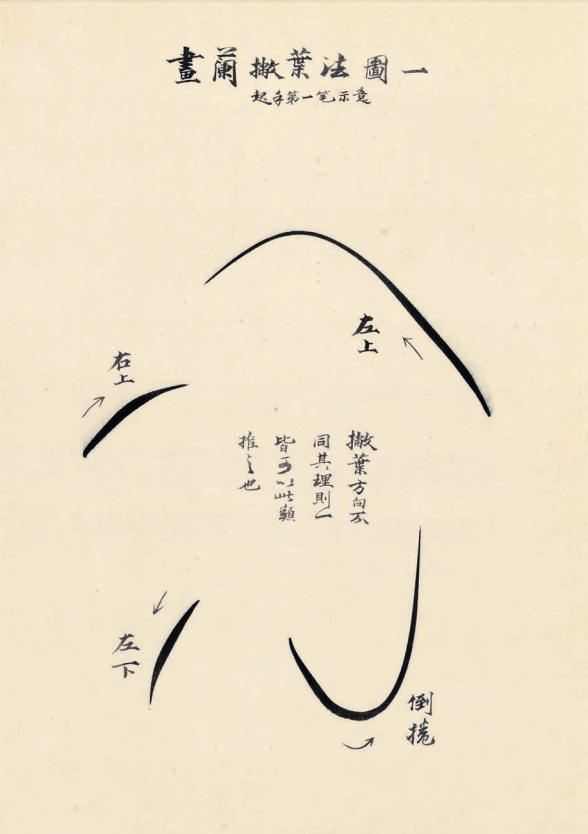 畫蘭撇葉法圖一
起手第一笔示意
左上
右上
撇葉方向不
同其理則一
皆可以此類
推之也
左下
倒捲